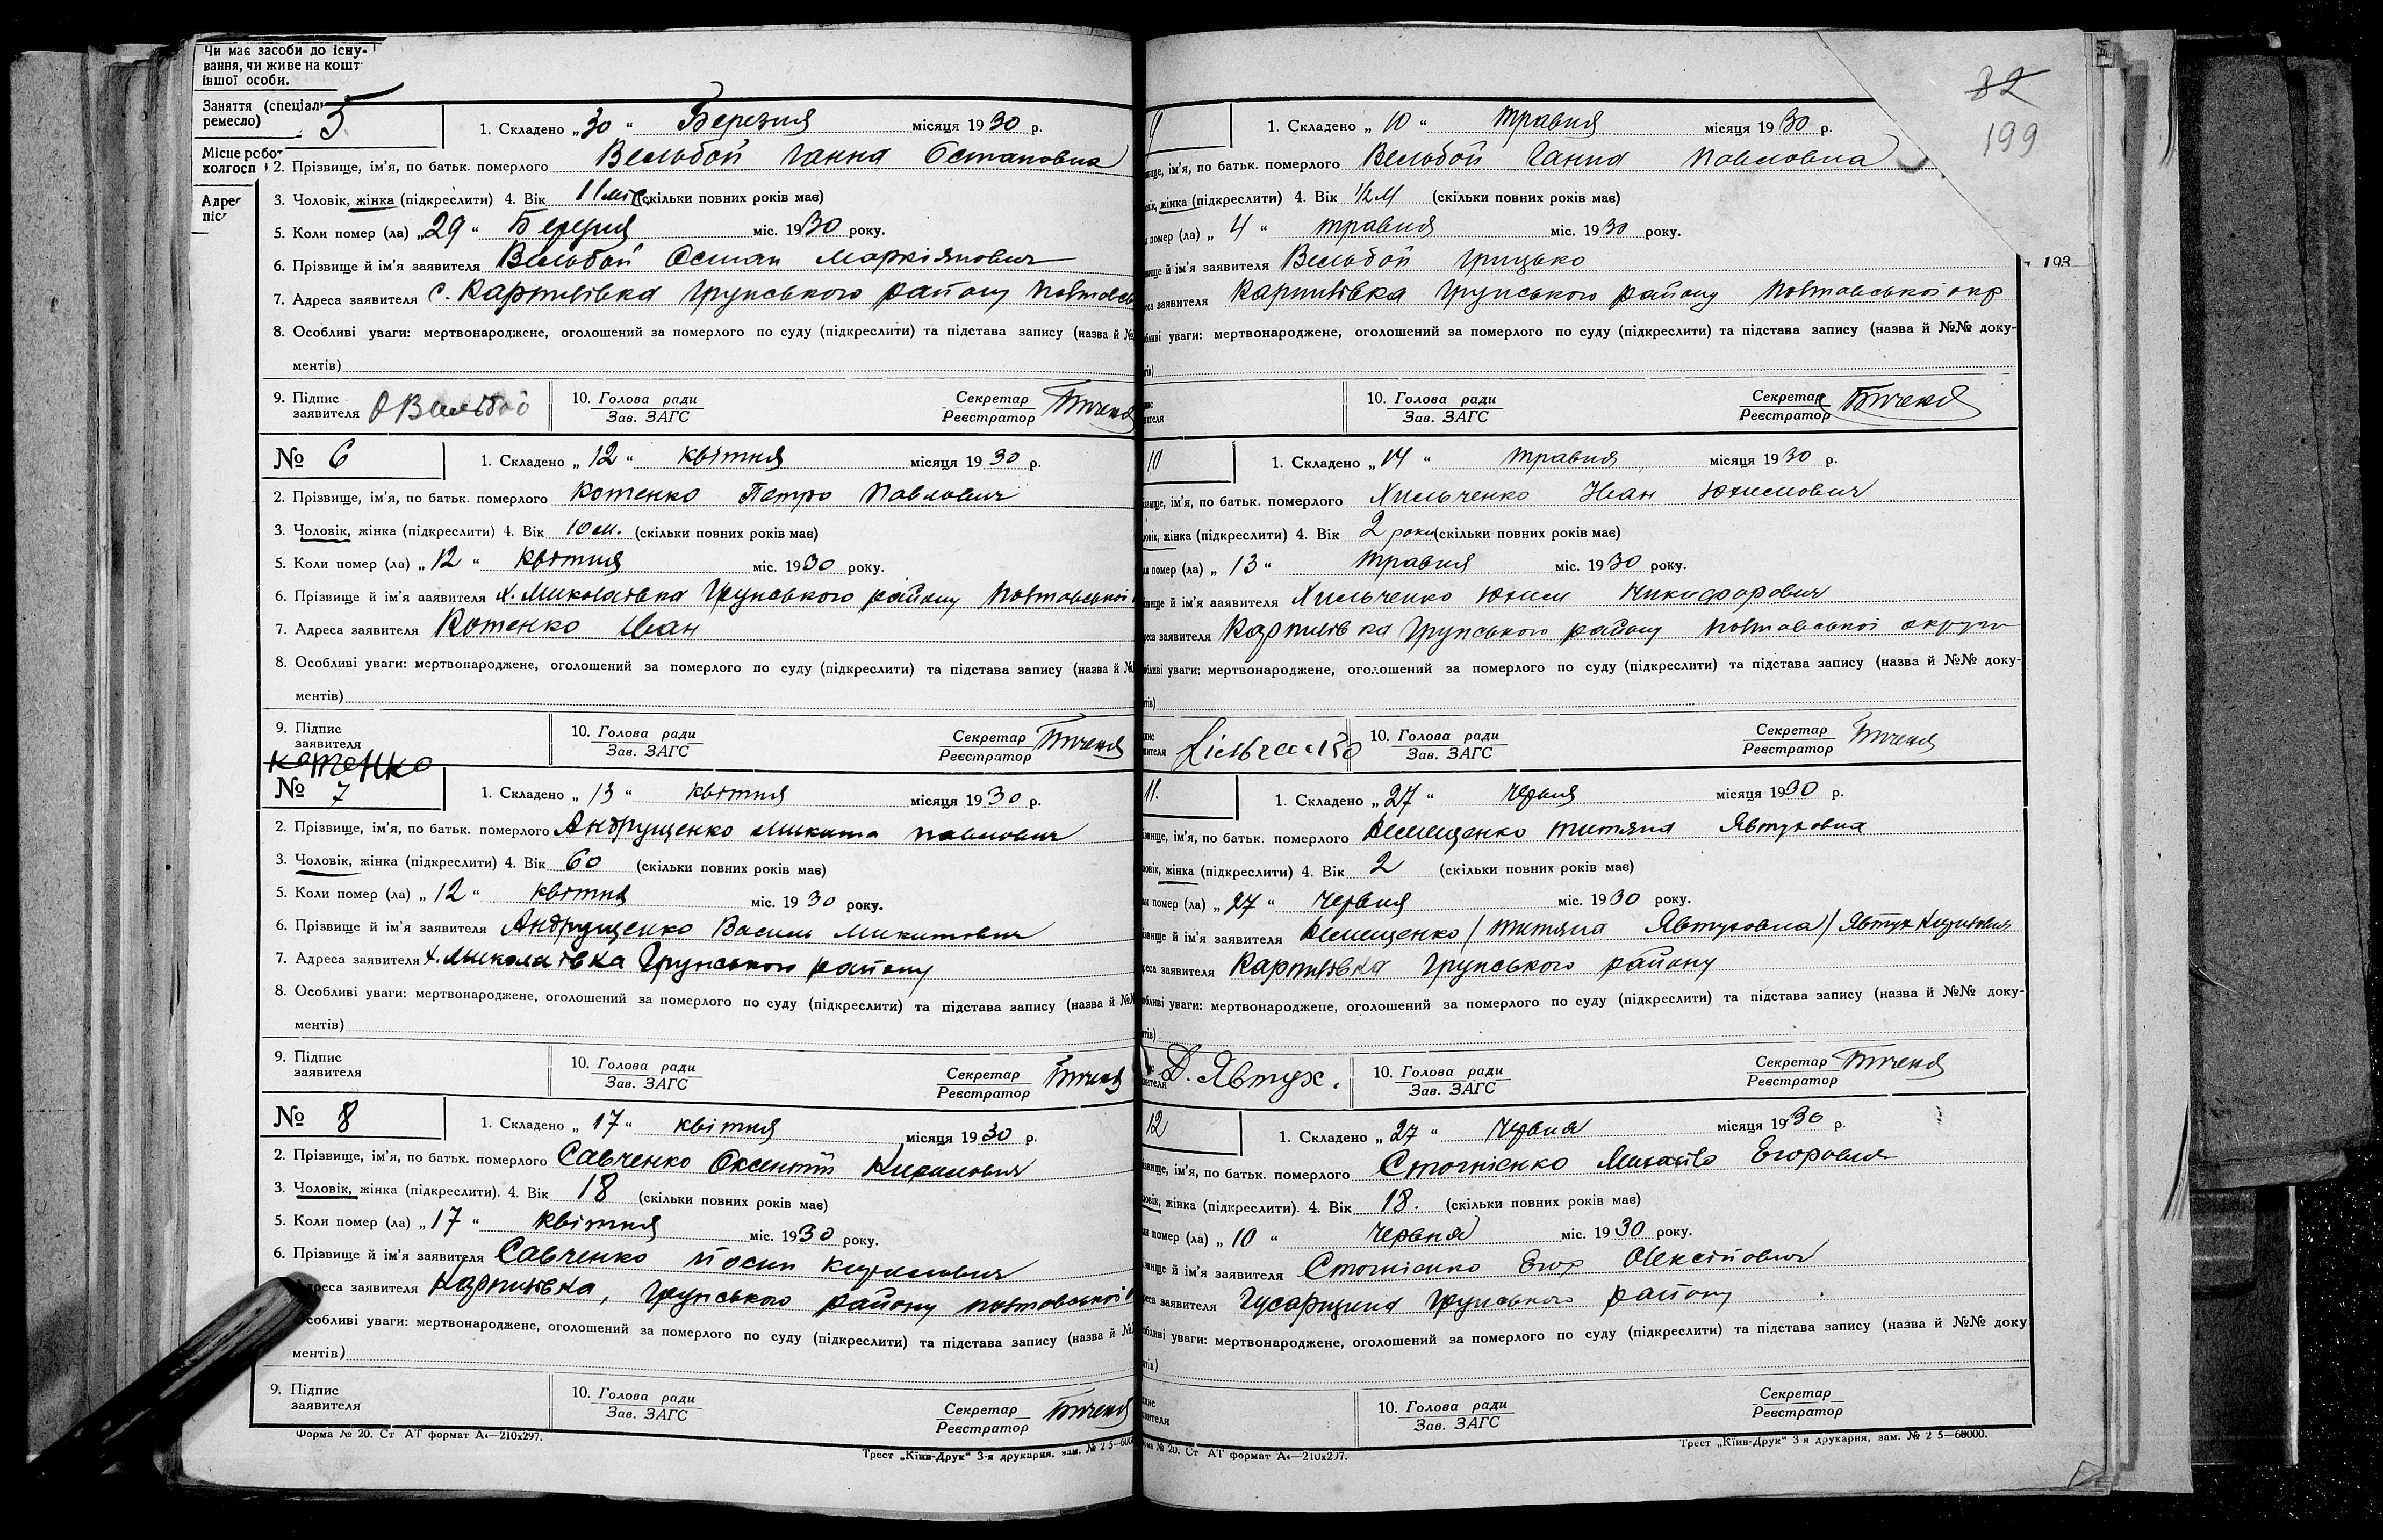 Чи має засоби до існу-
вання, чи живе на кошт
іншої особи.
Заняття (спеціал
ремесло)
Місце робо
колгосп
Адрес
піс
5
1. Складено „30“ Березня місяця 1930 р.
2. Прізвище, ім'я, по батьк. померлого Вельбой Ганна Остаповна
3. Чоловік, жінка (підкреслити) 4. Вік 11 міс (скільки повних років має)
5. Коли помер (ла) „29“ Березня міс. 1930 року.
6. Прізвище й ім'я заявителя Вельбой Остап Маркіянович
7. Адреса заявителя с. Карпилівка Грунського району Полтавсь
8. Особливі уваги: мертвонароджене, оголошений за померлого по суду (підкреслити) та підстава запису (назва й №
ментів)
9. Підпис заявителя О Вельбой
10. Голова ради
Зав. ЗАГС
Секретар
Реєстратор
№ 6
1. Складено „12“ квітня місяця 1930 р.
2. Прізвище, ім'я, по батьк. померлого Котенко Петро Павлович
3. Чоловік, жінка (підкреслити) 4. Вік 10 м. (скільки повних років має)
5. Коли помер (ла) „12“ квітня міс. 1930 року.
6. Прізвище й ім'я заявителя х. Миколаівка Грунського району Полтавської
7. Адреса заявителя Котенко Іван
8. Особливі уваги: мертвонароджене, оголошений за померлого по суду (підкреслити) та підстава запису (назва й №
ментів)
9. Підпис
заявителя
Котенко
10. Голова ради
Зав. ЗАГС
Секретар
Реєстратор
№ 7
1. Складено „13“ квітня місяця 1930 р.
2. Прізвище, ім'я, по батьк. померлого Андрущенко Микита Павлович
3. Чоловік, жінка (підкреслити) 4. Вік 60 (скільки повних років має)
5. Коли помер (ла) „12“ квітня міс. 1930 року.
6. Прізвище й ім'я заявителя Андрущенко Василь Микитович
7. Адреса заявителя х. Миколаівка Грунського району
8. Особливі уваги: мертвонароджене, оголошений за померлого по суду (підкреслити) та підстава запису (назва й №
ментів)
9. Підпис
заявителя
10. Голова ради
Зав. ЗАГС
Секретар
Реєстратор
№ 8
1. Складено „17“ квітня місяця 1930 р.
2. Прізвище, ім'я, по батьк. померлого Савченко Оксентій
3. Чоловік, жінка (підкреслити). 4. Вік 18 (скільки повних років має)
5. Коли помер (ла) „17“ квітня міс. 1930 року.
6. Прізвище й ім'я заявителя Савченко Йосип
реса заявителя Карпилівка, Грунського району Полтавської
собливі уваги: мертвонароджене, оголошений за померлого по суду (підкреслити) та підстава запису (назва й №
ментів)
9. Підпис
заявителя
10. Голова ради
Зав. ЗАГС
Секретар
Реєстратор
Форма № 20. Ст АТ формат А4—210х297.
Трест „Київ-Друк“ 3-я друкарня, зам. № 2 5—600
82
199
193
9
1. Складено „10“ травня місяця 1930 р.
вище, ім'я, по батьк. померлого Вельбой Ганна Павловна
вік, жінка (підкреслити) 4. Вік 1/2 м (скільки повних років має)
и помер (ла) „4“ травня міс. 1930 року.
вище й ім'я заявителя Вельбой Грицько
еса заявителя Карпилівка Грунського району Полтавської окр
бливі уваги: мертвонароджене, оголошений за померлого по суду (підкреслити) та підстава запису (назва й №№ доку-
тів)
10. Голова ради
Зав. ЗАГС
Секретар
Реєстратор
10
1. Складено „14“ травня місяця 1930 р.
вище, ім'я, по батьк. померлого Хильченко Іван Юхимович
овік, жінка (підкреслити) 4. Вік 2 роки (скільки повних років має)
и помер (ла) „13“ травня міс. 1930 року.
вище й ім'я заявителя Хильченко Юхим Никифорович
еса заявителя Карпилівка Грунського району Полтавської округи
бливі уваги: мертвонароджене, оголошений за померлого по суду (підкреслити) та підстава запису (назва й №№ доку-
тів)
10. Голова ради
Зав. ЗАГС
Секретар
Реєстратор
11.
1. Складено „27“ червня місяця 1930 р.
вище, ім'я, по батьк. померлого Титяна Явтуховна
овік, жінка (підкреслити) 4. Вік 2 (скільки повних років має)
и помер (ла) „27“ червня міс. 1930 року.
вище й ім'я заявителя /Титяна Явтуховна/ Явтух
еса заявителя Карпилівка Грунського району
бливі уваги: мертвонароджене, оголошений за померлого по суду (підкреслити) та підстава запису (назва й №№ доку-
тів)
Д. Явтух.
10. Голова ради
Зав. ЗАГС
Секретар
Реєстратор
12
1. Складено „27“ червня місяця 1930 р.
вище, ім'я, по батьк. померлого Стогнієнко Михайло Егорович
овік, жінка (підкреслити). 4. Вік 18. (скільки повних років має)
и помер (ла) „10“ червня міс. 1930 року.
вище й ім'я заявителя Стогнієнко Егор Олексійович
еса заявителя Гусарщина Грунського району
бливі уваги: мертвонароджене, оголошений за померлого по суду (підкреслити) та підстава запису (назва й №№ доку
тів)
10. Голова ради
Зав. ЗАГС
Секретар
Реєстратор
№ 20. Ст АТ формат А4—210х297.
Трест „Київ-Друк“ 3-я друкарня, зам. № 2 5—60000.